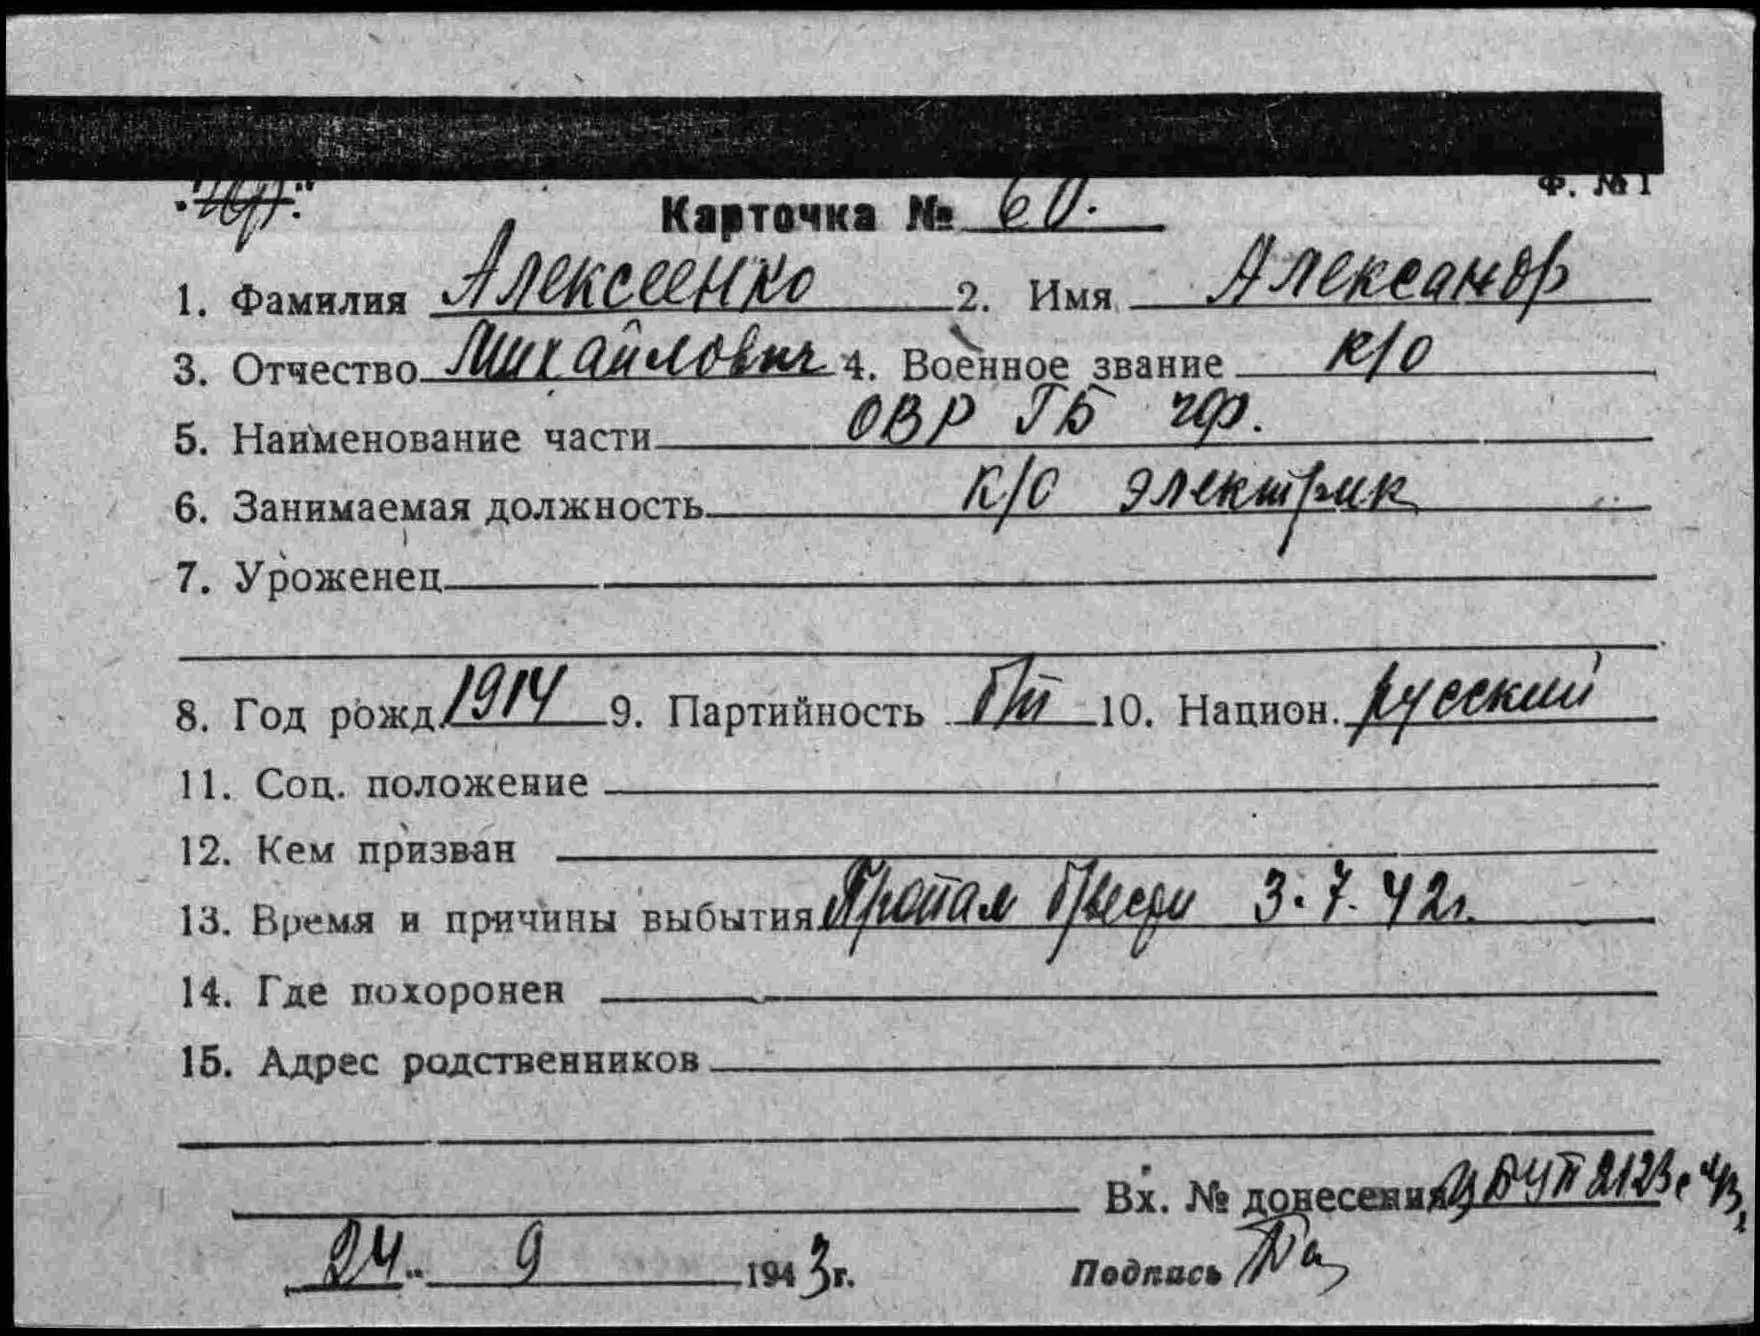 Ф. № 1
Карточка № 60.
1. Фамилия Алексеенко 2. Имя Александр
3. Отчество Михайлович 4. Военное звание к/о
5. Наименование части ОВР ГБ ЧФ.
6. Занимаемая должность к/о электрик
7. Уроженец
8. Год рожд. 1914 9. Партийность б/п 10. Национ. русский
11. Соц. положение
12. Кем призван
13. Время и причины выбытия Пропал б/вести 3.7.42г.
14. Где похоронен
15. Адрес родственников
Вх. № донесения ЦБУП 2123с
24. 9 1943г. Подпись